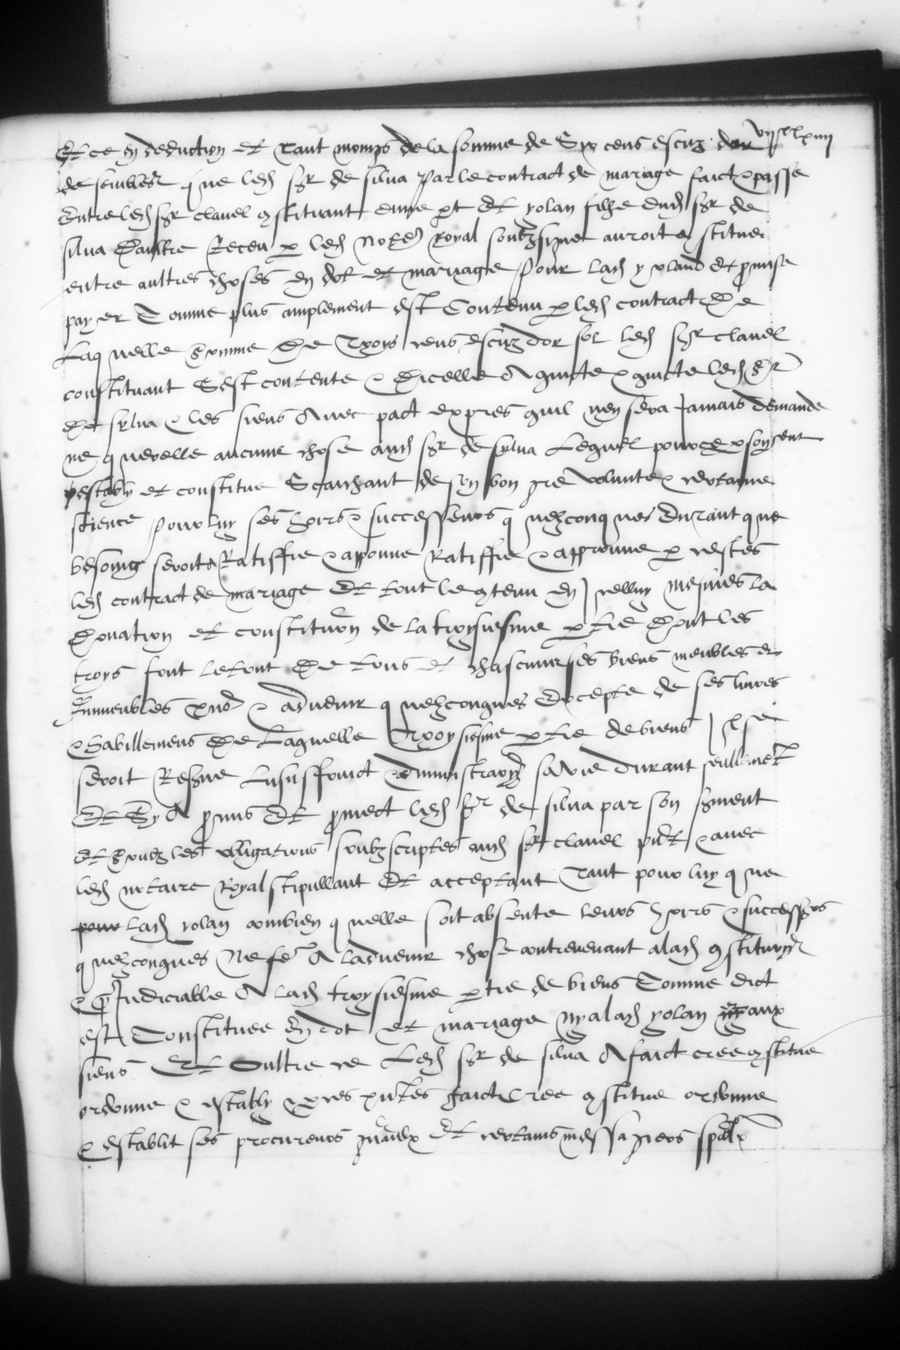 vijc lxiiij
Et ce en deduction et tant moings de la somme de Six cens escuz dor
de semblez que led sgr de silua par le contract de mariage faict & passe
Entre led sgr clauel constituant dune pt et yolan filhe dud sgr de
silua daultre Receu par led notere Royal soubzsigne auroit constitue
entre aultres choses en dot et mariage Pour lad yoland et promise
payer Comme plus amplement est Contenu par led contract De
Laquelle Somme De Troys cens escuz dor sol led sgr clauel
constituant Sest contente & Dicelle A quicte & quicte led Sr
De sylua & les siens Auec pact expres quil nen sera Jamais demande
ne querelle aucune chose aud sgr de sylua Lequel pource & soy sent
establi et constitue Scaichant de son bon gre volunte & certaine
science Pour luy ses hoirs & successeurs quelzconques Durant que
besoing seroit A Ratiffie & appouue Ratiffie & approuue par cestes
led contract de mariage Et tout le contenu en Icelluy mesmes la
Donation et constitution de la troysiesme partie Dont les
troys font le tout De tous et chascuns ses biens meubles et
Immeubles pns & aduenir quelzconques Excepte de ses liures
& habillemens De Laquelle Troysiesme partie de biens Il se
seroit Reserue Lusuffruict & administration sa vie durant seullement
Et Sy A promis Et promect led sgr de silua par son serment
et soubz les obligations soubzscriptes aud sgr clauel pnt & auec
led notaire Royal stipullant Et acceptant Tant pour luy que
pour lad yolan combien quelle soit absente leurs hoirs & successeurs
quelzconques Ne fe A laduenir chose contreuenant a lad constitution
& preiudiciable A lad troysiesme partie de biens Comme dict
est Constituee En dot et mariage ny a lad yolan ny aux
siens Et Oultre ce Led sgr de silua A faict cree constitue
ordonne & estably & par ces pntes faict Cree constitue ordonne
& establit ses procureurs gnaulx Et certains messagiers spaulx